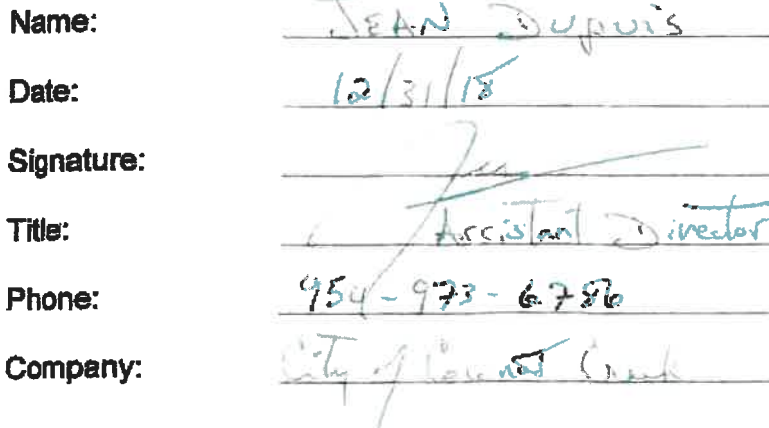 Name: JEAN Dupuis
Date: 12/31/18
Signature:
Title: Assistant Director
Phone: 954-973-6786
Company: City of Coconut Creek